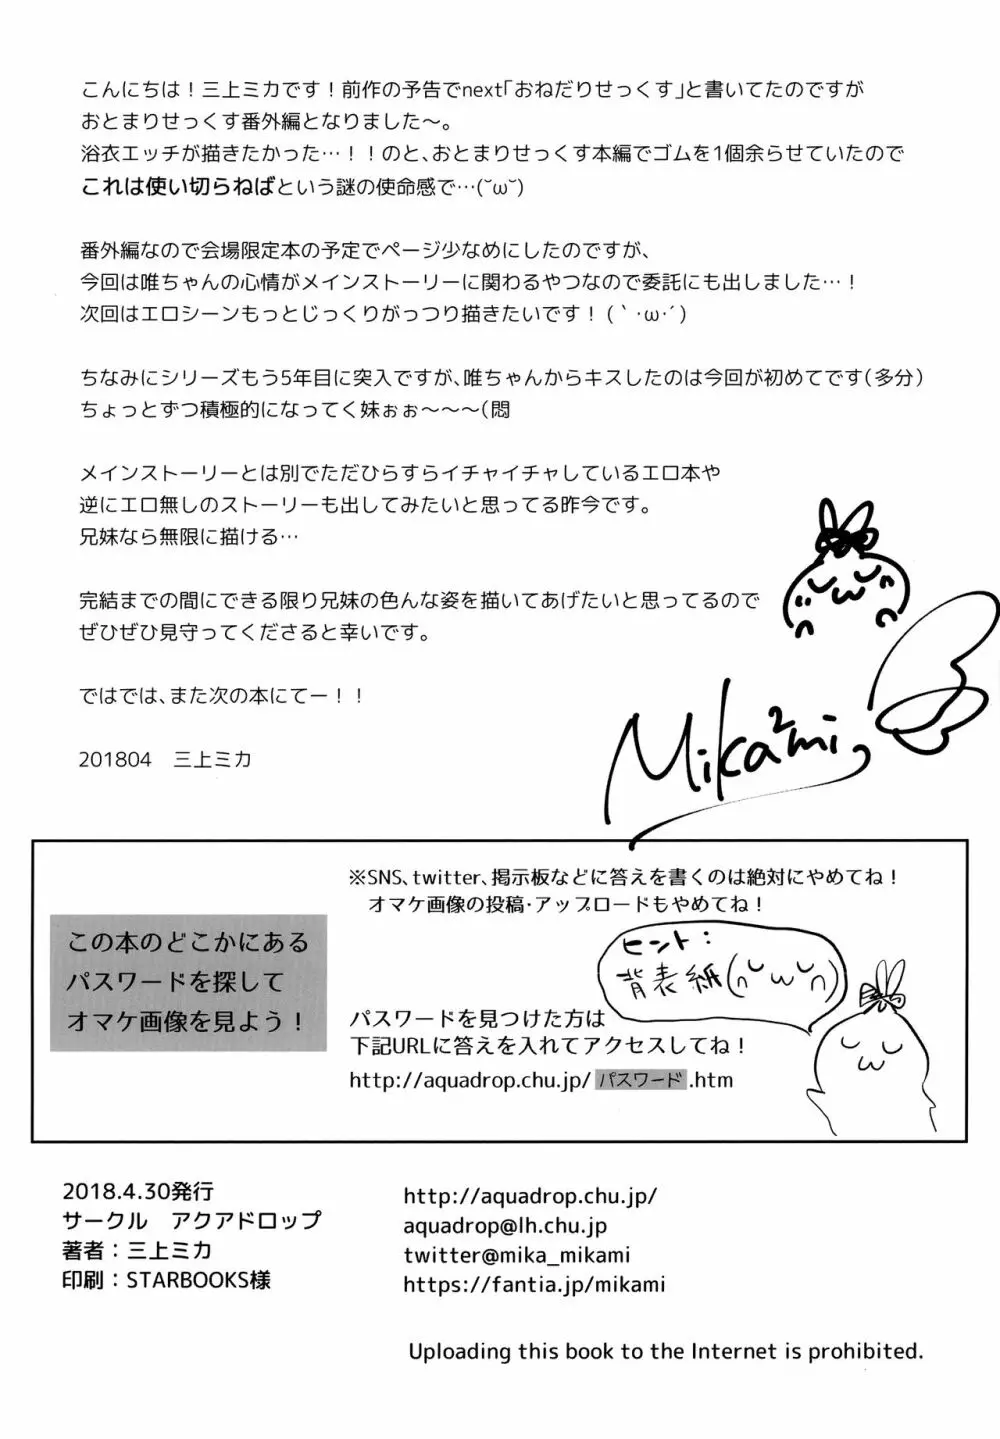 こんにちは！三上ミカです！前作の予告でnext「おねだりせっくす」と書いてたのですが
おとまりせっくす番外編となりました～。
浴衣エッチが描きたかった…！！のと、おとまりせっくす本編でゴムを1個余らせていたので
これは使い切らねばという謎の使命感で…(˘ω˘)
番外編なので会場限定本の予定でページ少なめにしたのですが、
今回は唯ちゃんの心情がメインストーリーに関わるやつなので委託にも出しました…！
次回はエロシーンもっとじっくりがっつり描きたいです！(｀･ω･´)
ちなみにシリーズもう5年目に突入ですが、唯ちゃんからキスしたのは今回が初めてです（多分）
ちょっとずつ積極的になってく妹ぉぉ～～～（悶
メインストーリーとは別でただひらすらイチャイチャしているエロ本や
逆にエロ無しのストーリーも出してみたいと思ってる昨今です。
兄妹なら無限に描ける…
完結までの間にできる限り兄妹の色んな姿を描いてあげたいと思ってるので
ぜひぜひ見守ってくださると幸いです。
ではでは、また次の本にてー！！
201804　三上ミカ
Mika²mi
※SNS、twitter、掲示板などに答えを書くのは絶対にやめてね！
オマケ画像の投稿･アップロードもやめてね！
この本のどこかにある
パスワードを探して
オマケ画像を見よう！
ヒント：
背表紙(∩˘ω˘∩)
パスワードを見つけた方は
下記URLに答えを入れてアクセスしてね！
http://aquadrop.chu.jp/パスワード.htm
2018.4.30発行
サークル　アクアドロップ
著者：三上ミカ
印刷：STARBOOKS様
http://aquadrop.chu.jp/
aquadrop@lh.chu.jp
twitter@mika_mikami
https://fantia.jp/mikami
Uploading this book to the Internet is prohibited.